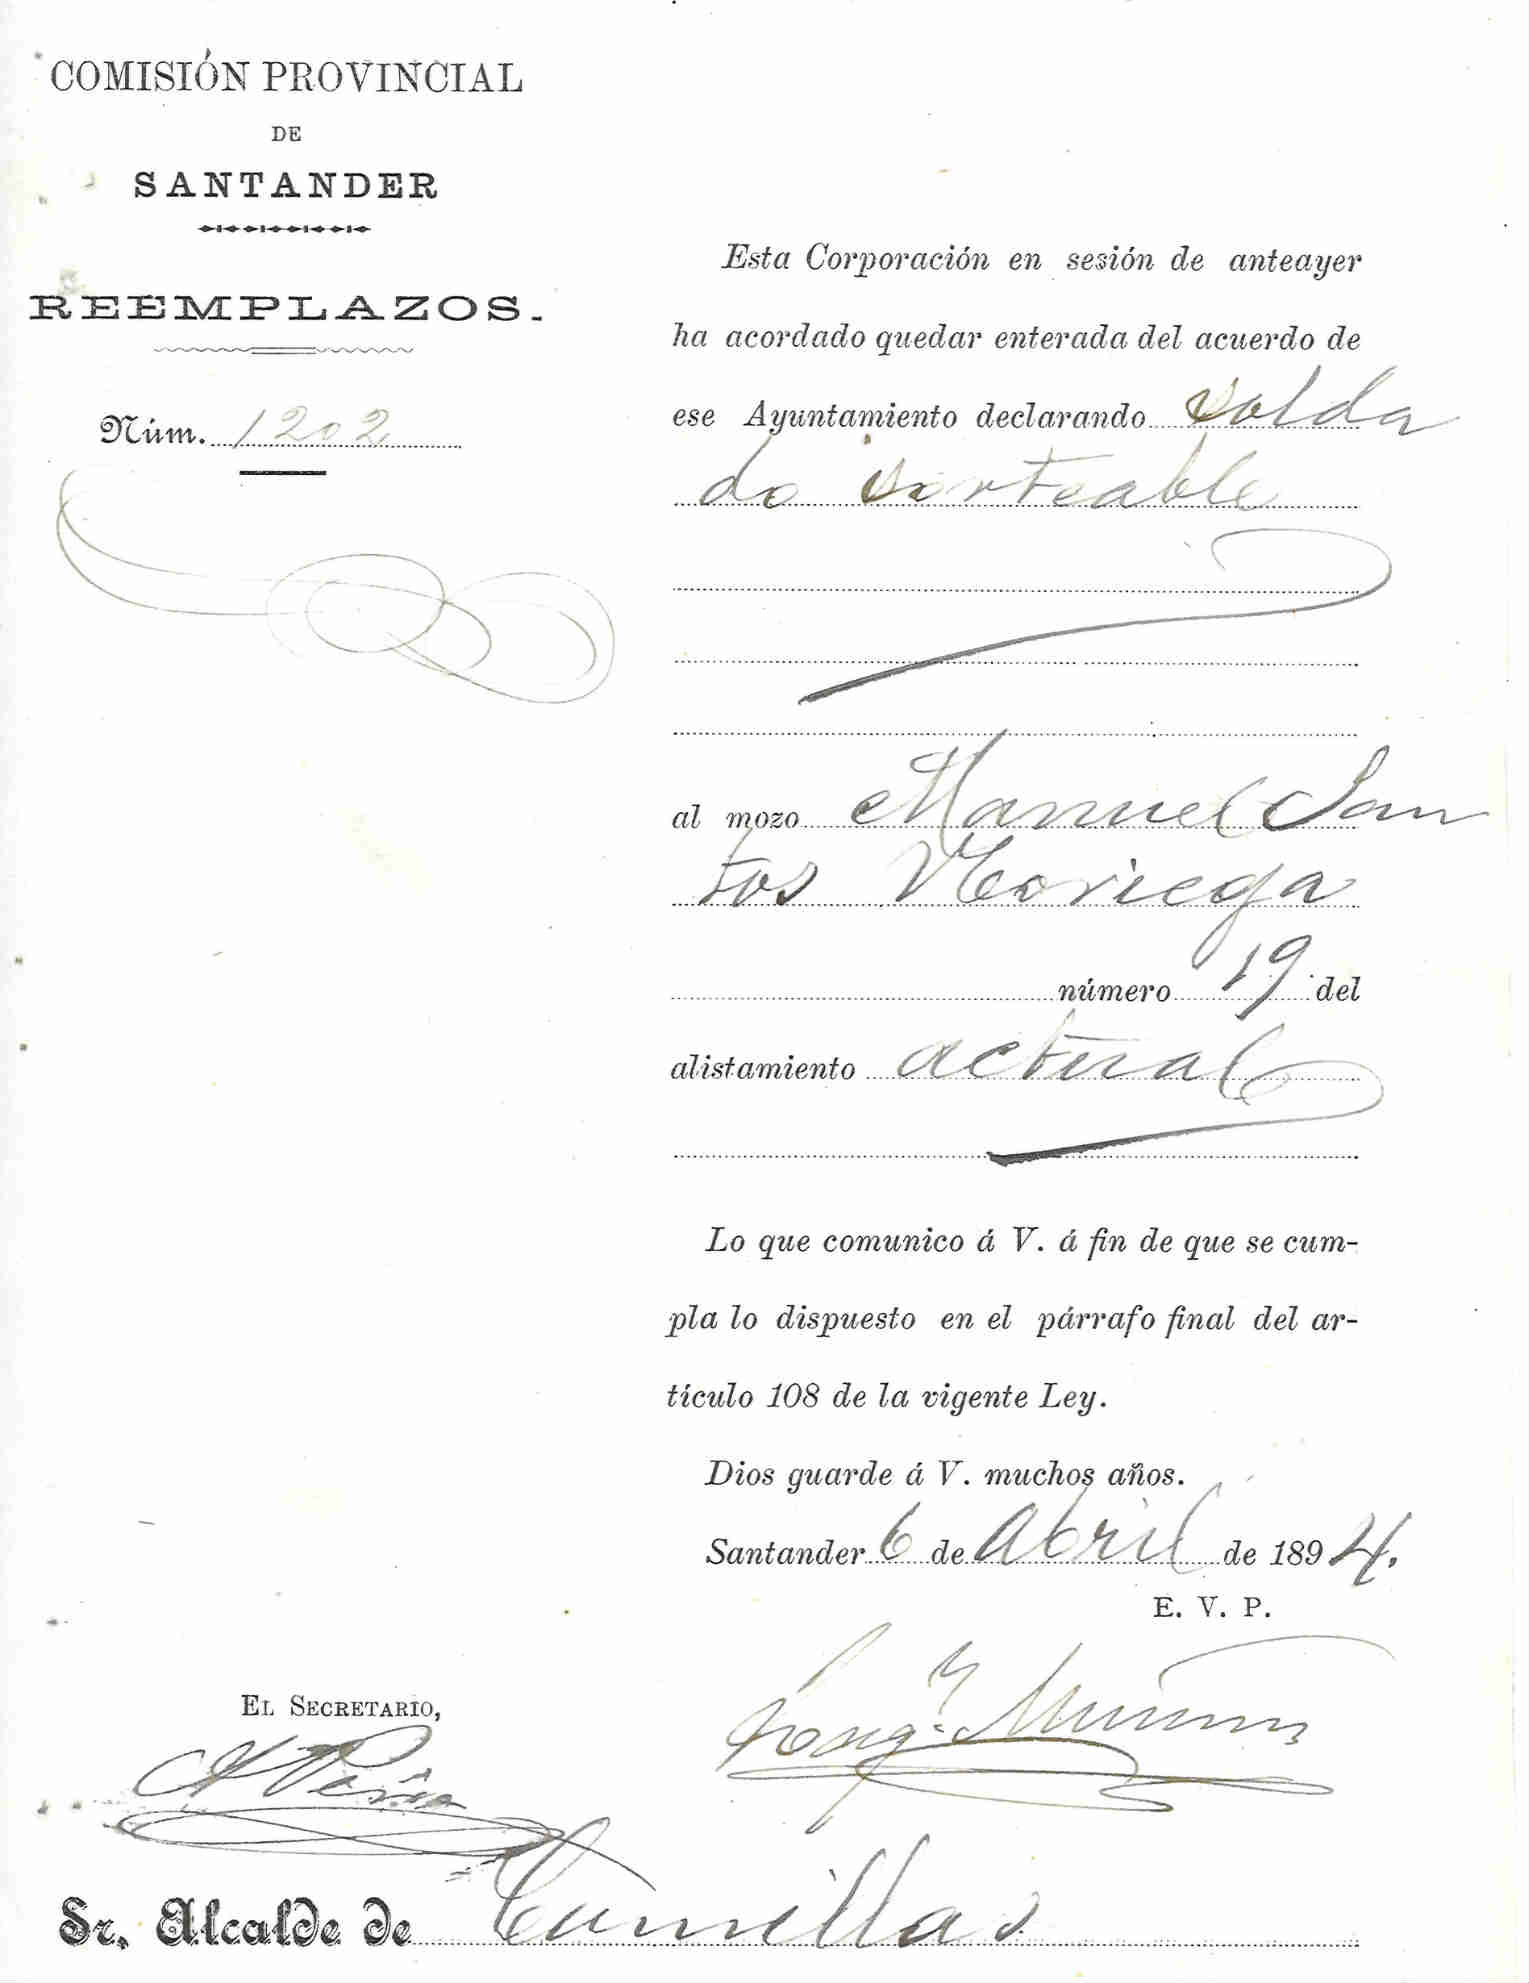 COMISIÓN PROVINCIAL
DE
SANTANDER
REEMPLAZOS.
Núm. 1202
Esta Corporación en sesión de anteayer
ha acordado quedar enterada del acuerdo de
ese Ayuntamiento declarando solda
do sorteable
al mozo Manuel San
tos Noriega
número 19 del
alistamiento actual
Lo que comunico á V. á fin de que se cum-
pla lo dispuesto en el párrafo final del ar-
tículo 108 de la vigente Ley.
Dios guarde á V. muchos años.
Santander 6 de Abril de 1894.
E. V. P.
EL SECRETARIO,
Sr. Alcalde de Comillas